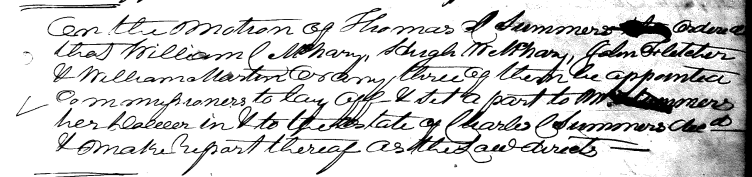 On the Motion of Thomas L Summers ordered
that William C McKary, Hugh W McKary, John Fletcher
& William Martin or any three of them be appointed
Commissioners to lay off & set a part to Mrs Summers
her Dower in & to the Estate of Charles C Summers decd
& make report thereof as the Law directs